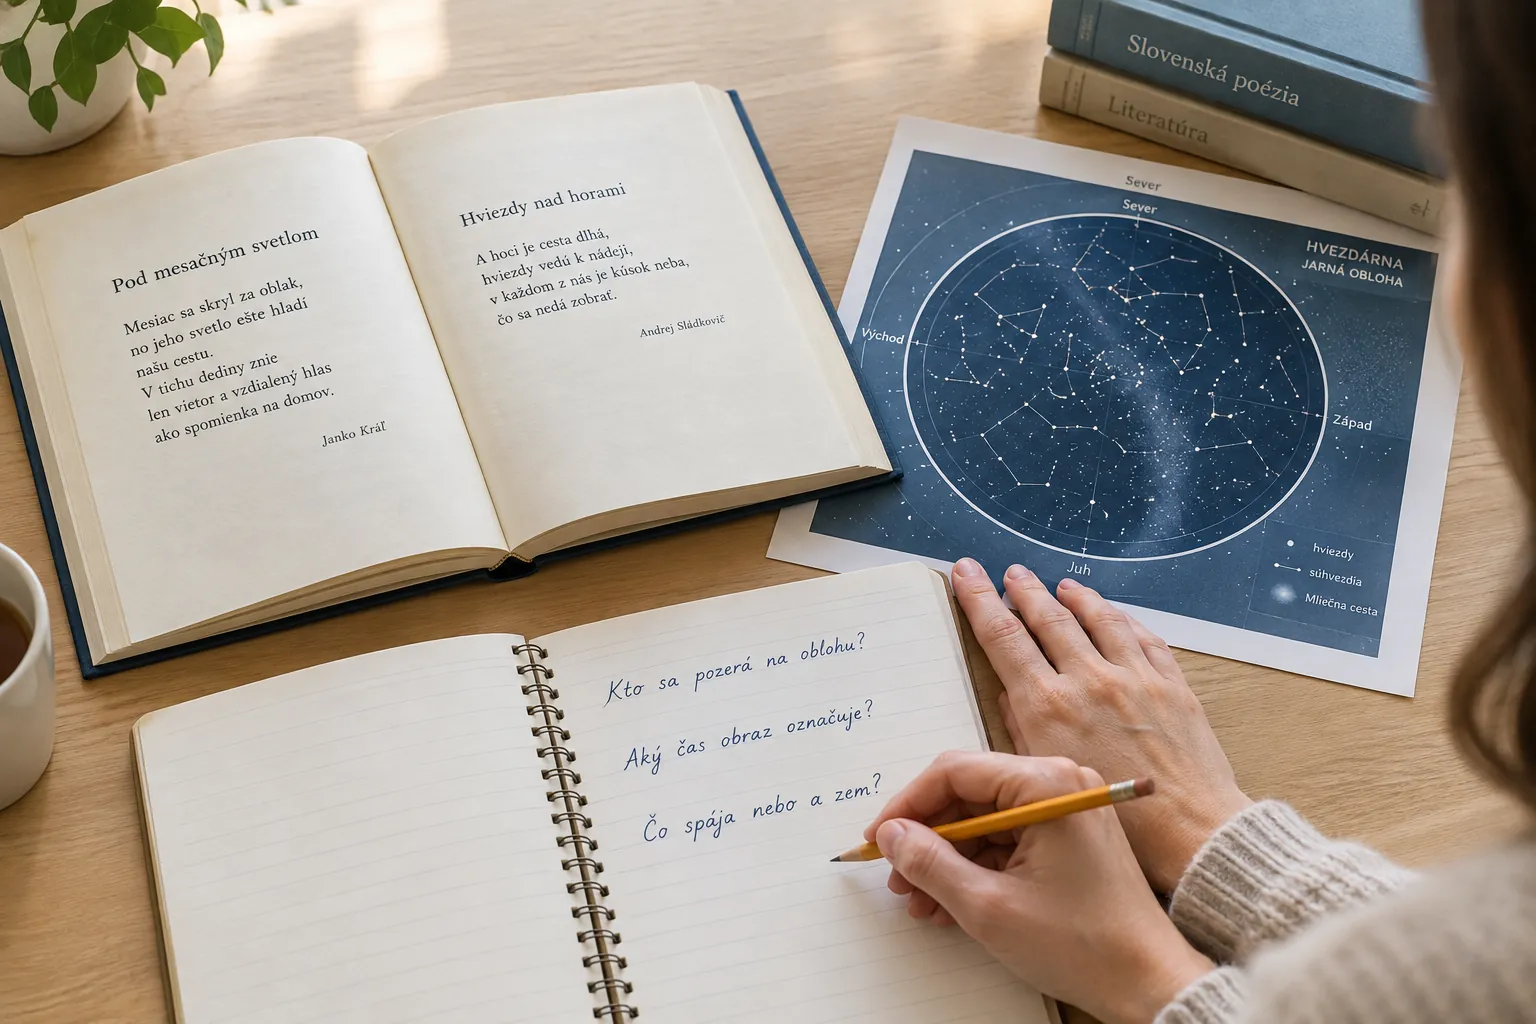 Pod mesačným svetlom
Mesiac sa skryl za oblak,
no jeho svetlo ešte hladí
našu cestu.
V tichu dediny znie
len vietor a vzdialený hlas
ako spomienka na domov.
Janko Kráľ
Hviezdy nad horami
A hoci je cesta dlhá,
hviezdy vedú k nádeji,
v každom z nás je kúsok neba,
čo sa nedá zobrať.
Andrej Sládkovič
Slovenská poézia
Literatúra
Sever
Sever
HVEZDÁRNA
JARNÁ OBLOHA
Východ
Západ
Juh
hviezdy
súhvezdia
Mliečna cesta
Kto sa pozerá na oblohu?
Aký čas obraz označuje?
Čo spája nebo a zem?